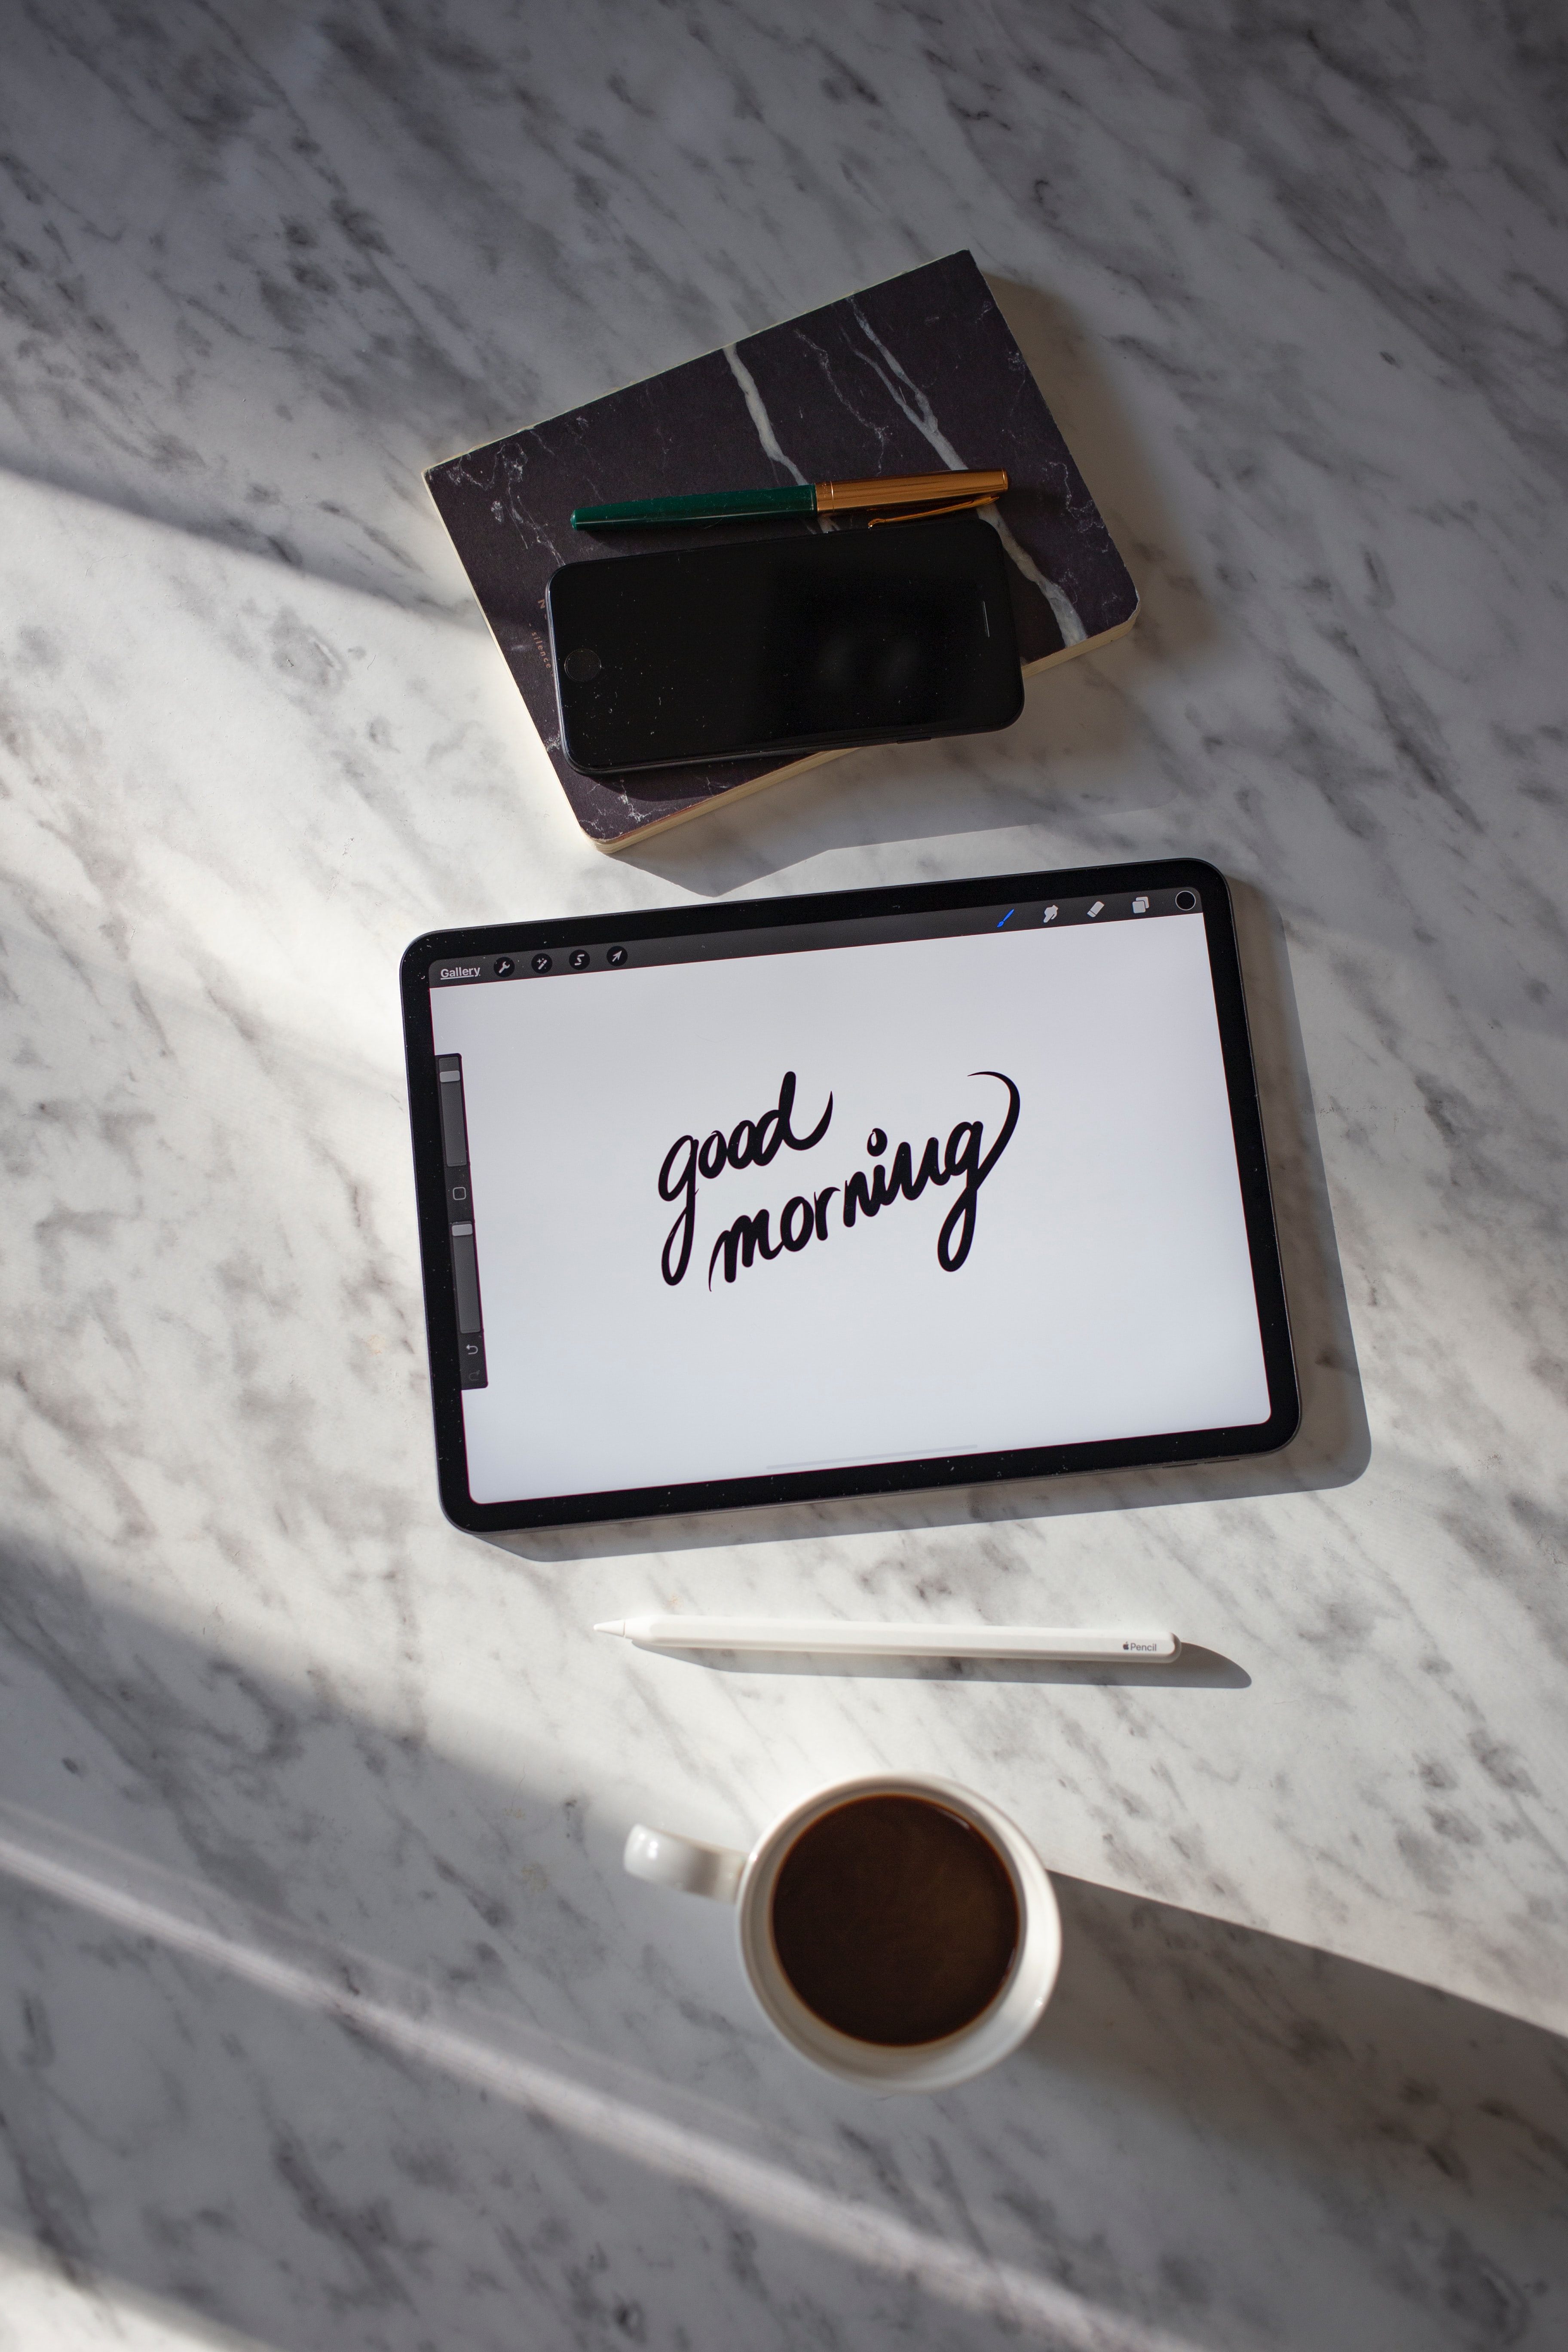 silence
Gallery
good
morning
Pencil